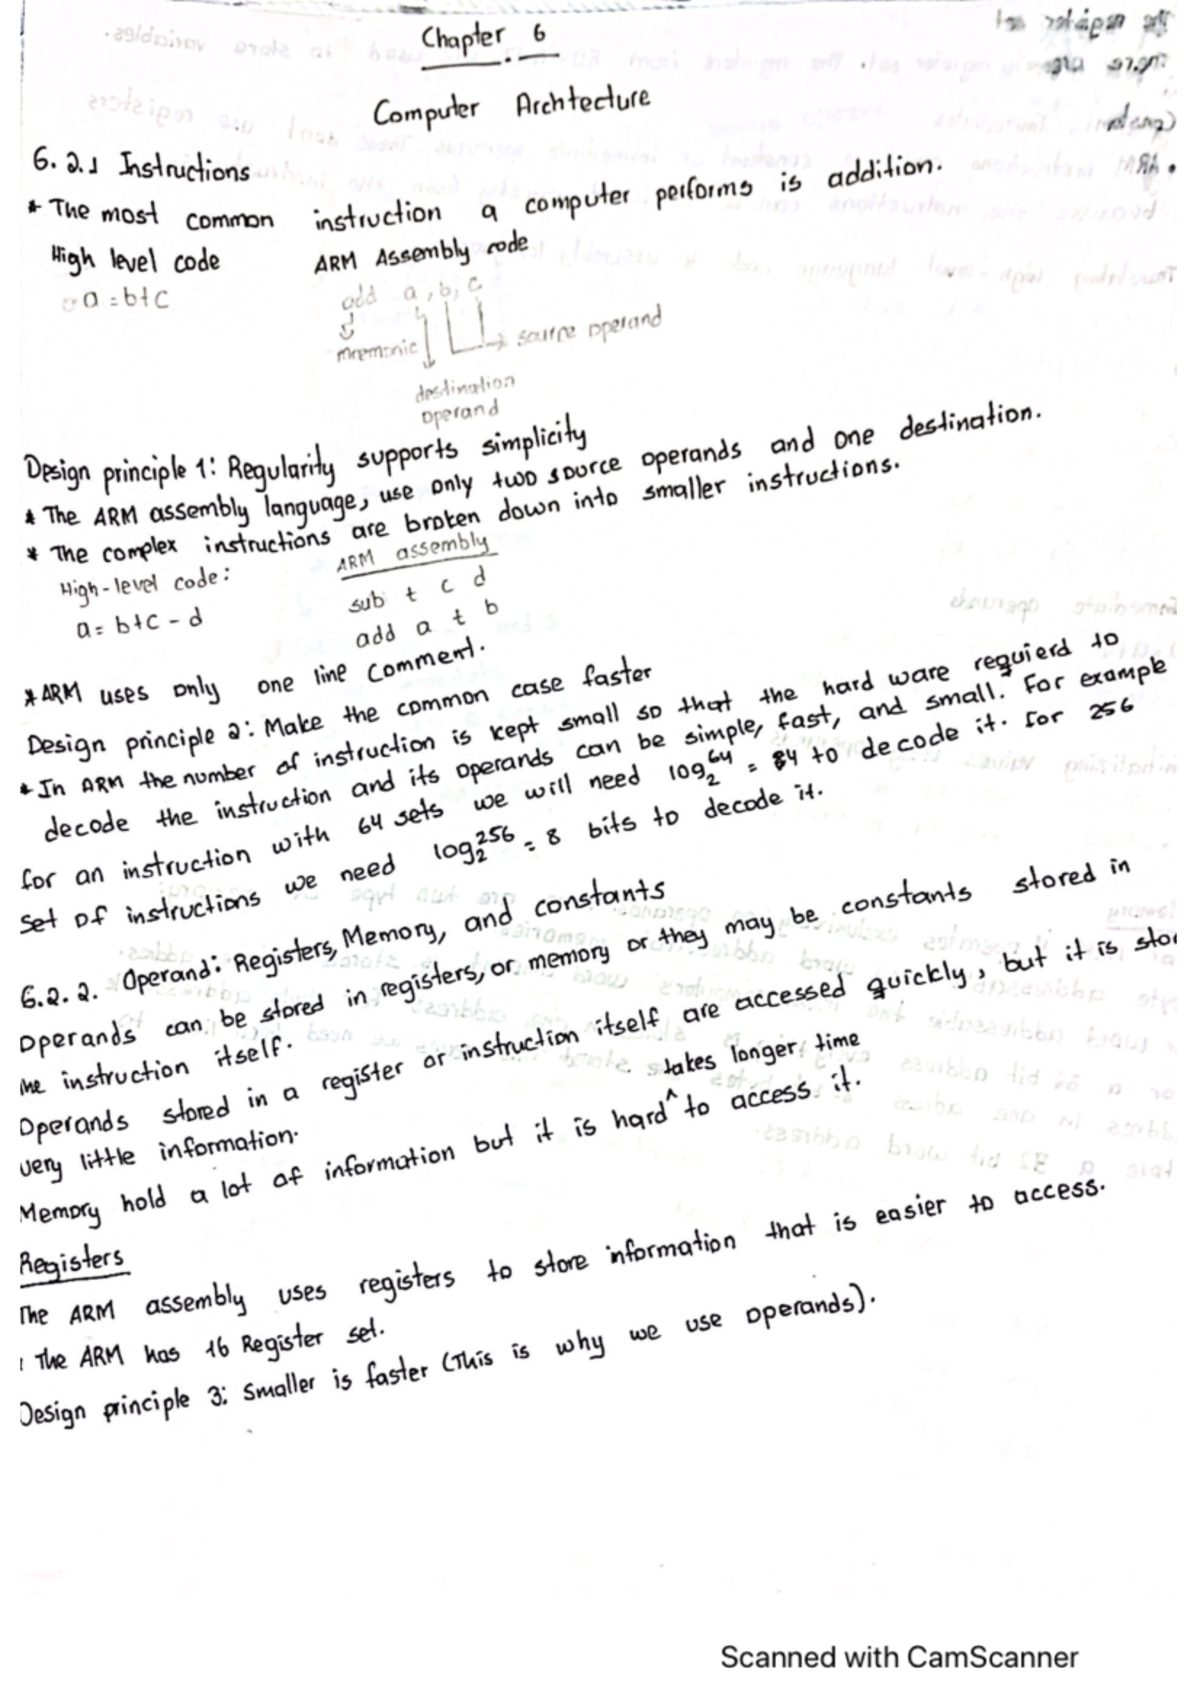 Chapter 6
Computer Archtecture
6.2.1 Instructions
* The most common instruction a computer performs is addition.
High level code ARM Assembly code
a = b+c add a, b, c
mnemonic source operand
destination
operand
Design principle 1: Regularity supports simplicity
* The ARM assembly language, use only two source operands and one destination.
* The complex instructions are broken down into smaller instructions.
High-level code: ARM assembly
a = b+c - d sub t c d
add a t b
* ARM uses only one line comment.
Design principle 2: Make the common case faster
* In ARM the number of instruction is kept small so that the hard ware requierd to
decode the instruction and its operands can be simple, fast, and small. For example
for an instruction with 64 sets we will need log₂64 = 84 to decode it. for 256
set of instructions we need log₂256 = 8 bits to decode it.
6.2.2. Operand: Registers, Memory, and constants
Operands can be stored in registers, or memory or they may be constants stored in
the instruction itself.
Operands stored in a register or instruction itself are accessed quickly, but it is stor
very little information.
Memory hold a lot of information but it is hard takes longer time to access it.
Registers
The ARM assembly uses registers to store information that is easier to access.
The ARM has 16 Register set.
Design principle 3: Smaller is faster (This is why we use operands).
Scanned with CamScanner